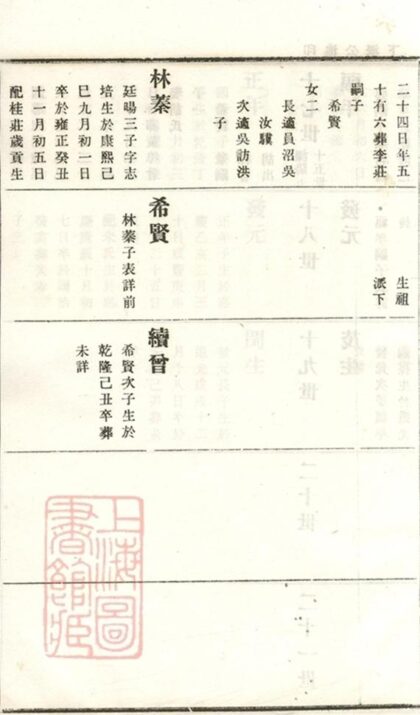 二十四日年五
十有六葬李莊
嗣子
希賢
女二
長適員沼吳
汝驥
次適吳訪洪
子
林蓁
廷暘三子字志
培生於康熙己
巳九月初一日
卒於雍正癸丑
十一月初五日
配桂莊歲貢生
生祖
派下
希賢
林蓁子表詳前
續曾
希賢次子生於
乾隆己丑卒葬
未詳
上海圖
書館藏